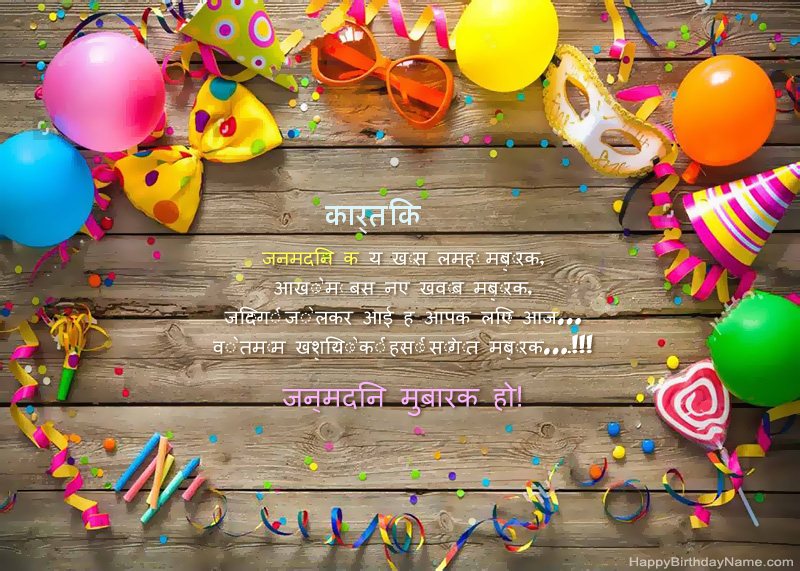 कार्तिक
जन्मदिन के ये ख़ास लम्हें मुबारक,
आँखों में बसे नए ख्वाब मुबारक,
जिंदगी जो लेकर आई है आपके लिए आज...
वो तमाम खुशियों की हसीं सौगात मुबारक...!!!
जन्मदिन मुबारक हो!
HappyBirthdayName.com